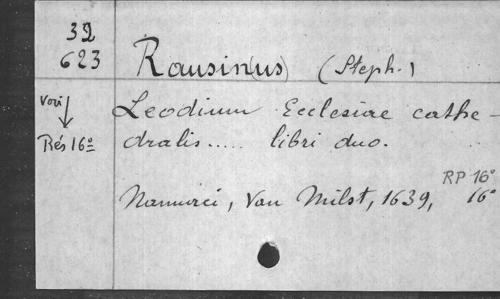 32
623
Rausin(us) (Steph.)
Voir
Rés 16º
Leodium Ecclesiae cathe-
dralis..... libri duo.
RP 16º
Namurci, Van Milst, 1639, 16º